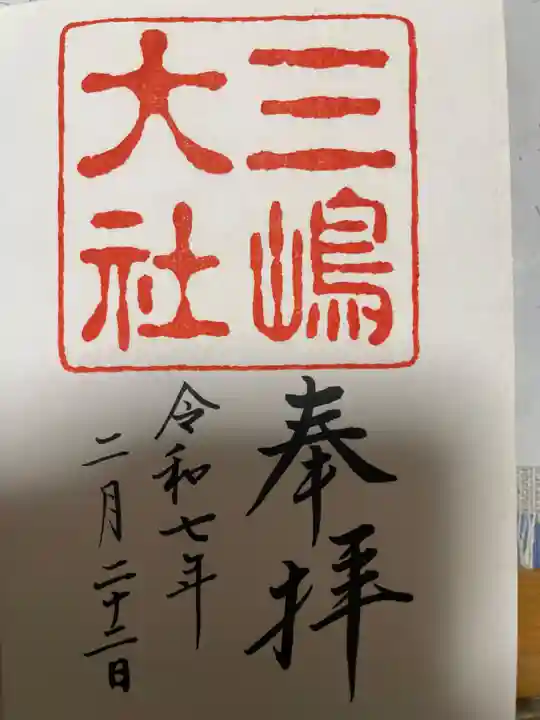 三嶋
大社
奉拝
令和七年
二月二十二日